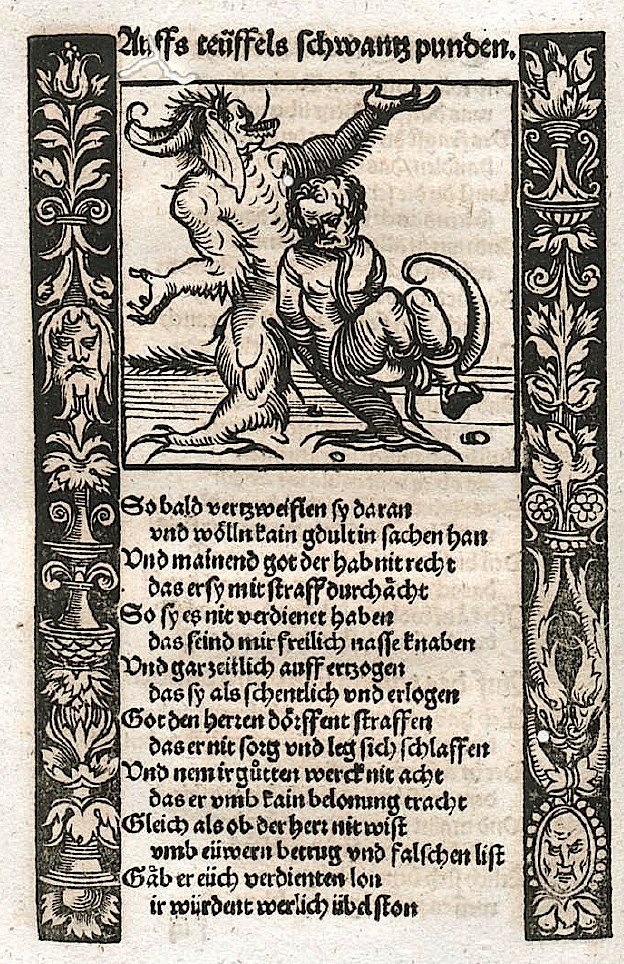 Auffs teüffels schwantz punden.
So bald vertzweiflen sy daran
vnd wölln kain gdult in sachen han
Vnd mainend got der hab nit recht
das er sy mit straff durchächt
So sy es nit verdienet haben
das seind mir freilich nasse knaben
Vnd gar zeitlich auff ertzogen
das sy als schentlich vnd erlogen
Got den herren dörffent straffen
das er nit sorg vnd leg sich schlaffen
Vnd nem ir gůtten werck nit acht
das er vmb kain belonung tracht
Gleich als ob der herr nit wist
vmb eüwern betrug vnd falschen list
Gäb er eüch verdienten lon
ir würdent werlich übel ston